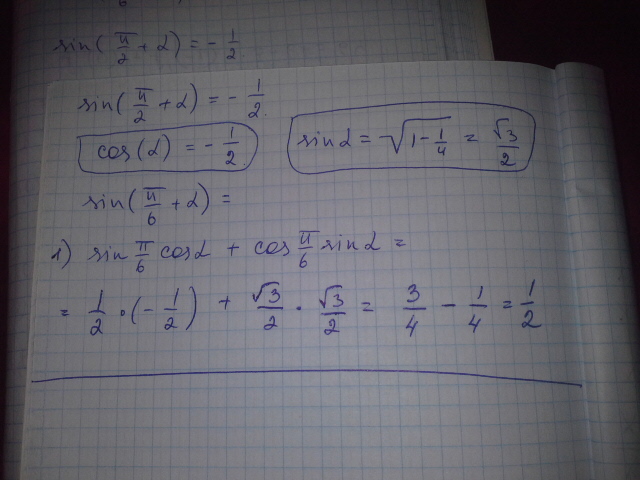 sin(π/2 + α) = - 1/2
sin(π/2 + α) = - 1/2.
cos(α) = - 1/2.
sin α = √(1 - 1/4) = √3/2
sin(π/6 + α) =
1) sin π/6 cos α + cos π/6 sin α =
= 1/2 · (- 1/2) + √3/2 · √3/2 = 3/4 - 1/4 = 1/2